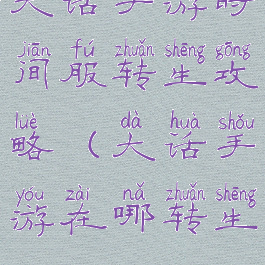 大话手游时
jiān fú zhuǎn shēng gōng
间服转生攻
lüè dà huà shǒu
略（大话手
yóu zài nǎ zhuǎn shēng
游在哪转生